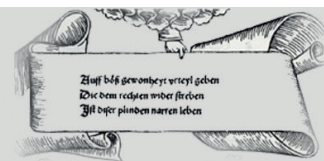 Auff böß gewonheyt vrteyl geben
Die dem rechten wider streben
Ist diser plinden narren leben